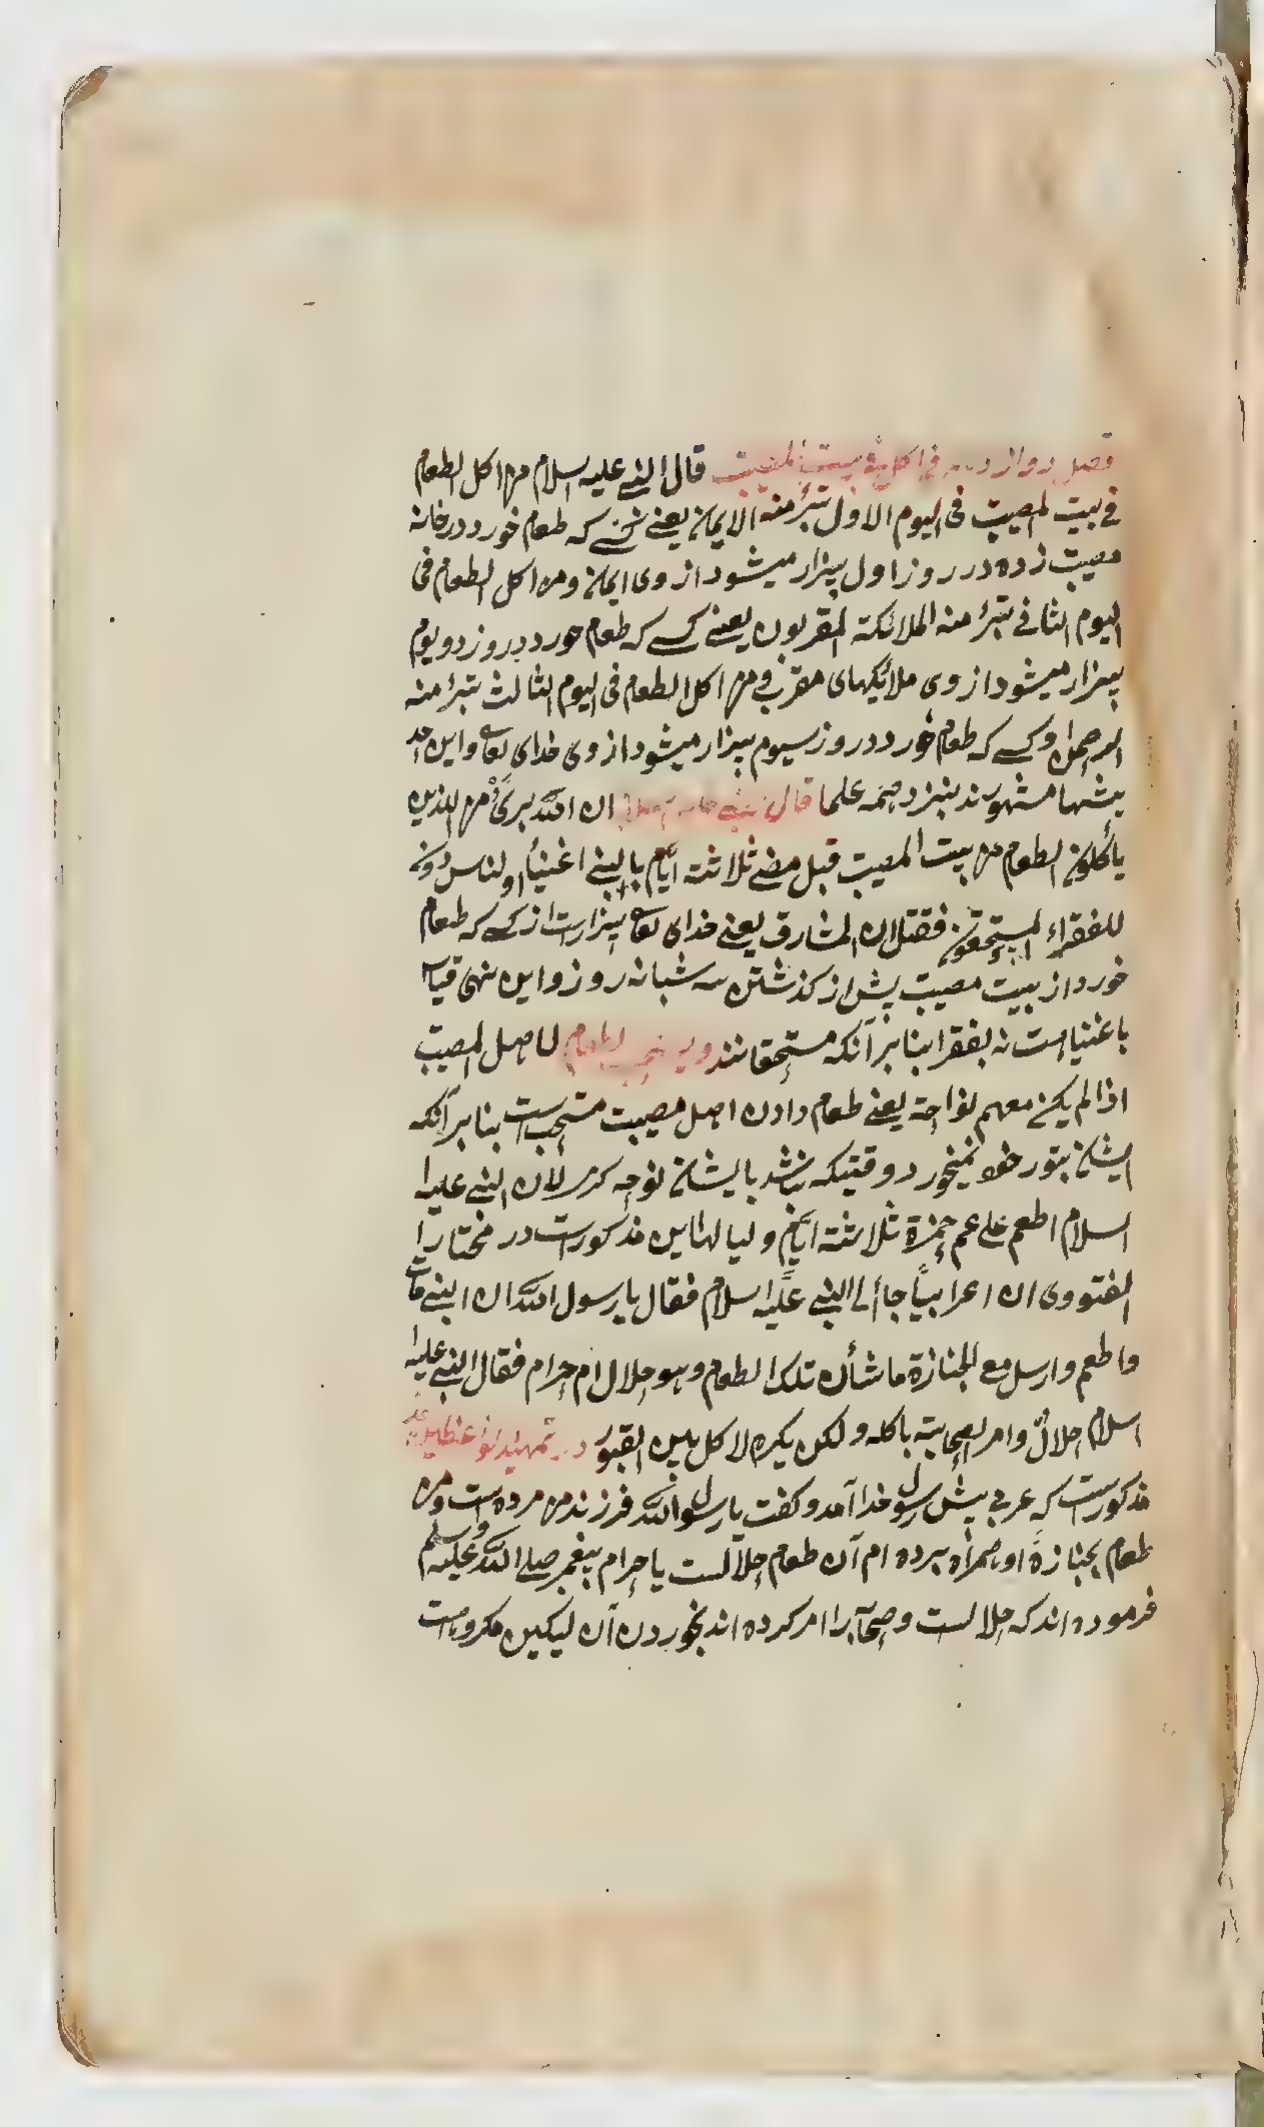 فصل دوازدهم فی اکل فی بیت المصیبت قال النبی علیه السلام من اکل الطعام
فی بیت المصیبت فی الیوم الاول تبرأ منه الایمان یعنی کسی که طعام خورد در خانه
مصیبت زده در روز اول بیزار میشود از وی ایمان و من اکل الطعام فی
الیوم الثانی تبرأ منه الملائکة المقربون یعنی کسی که طعام خورد در روز دویوم
بیزار میشود از وی ملائکهای مقرب و من اکل الطعام فی الیوم الثالث تبرأ منه
الرحمن و کسی که طعام خورد در روز سیوم بیزار میشود از وی خدای تعا و این احد
یثها مشهورند بنزد همه علما قال النبی علیه السلام ان الله بریٌ من الذین
یأکلون الطعام من بیت المصیب قبل مضی ثلاثة ایام بالبنی اغنیأ و لناس دون
للفقراء المستحقون یعنی خدای تعا بیزارست از کسی که طعام
خورد از بیت مصیبت پیش از کذشتن سه شبانه روز و این نهی
باغنیا است نه بفقرا بنا بر آنکه مستحقانند و یستحب الطعام لاهل المصیب
اذا لم یکن معهم نواحة یعنی طعام دادن اهل مصیبت مستحب است بنا بر آنکه
ایشان خود نمیخورد وقتیکه نباشد بایشان نوحه کر لان النبی علیه
السلام اطعم علی عم حمزة ثلاثة ایام و لیالها این مذکورست در مختار را
لفتووی ان اعرابیاً جأ الی النبی علیه السلام فقال یا رسول الله ان ابنی مات
و اطعم و ارسل مع الجنازة ما شأن تلک الطعام و هو حلال ام حرام فقال النبی علیه
اسلام حلالٌ و امر الصحابة باکله و لکن یکره لاکل بین القبور در تمهید
مذکورست که عربی پیش رسول خدا آمد و کفت یا رسول الله فرزند من مرده است و من
طعام بجنازهٔ او همراه برده ام آن طعام حلالست یا حرام پیغمبر صلی الله علیه و سلم
فرموده اند که حلالست و صحابه را امر کرده اند بخوردن آن لیکین مکروهست